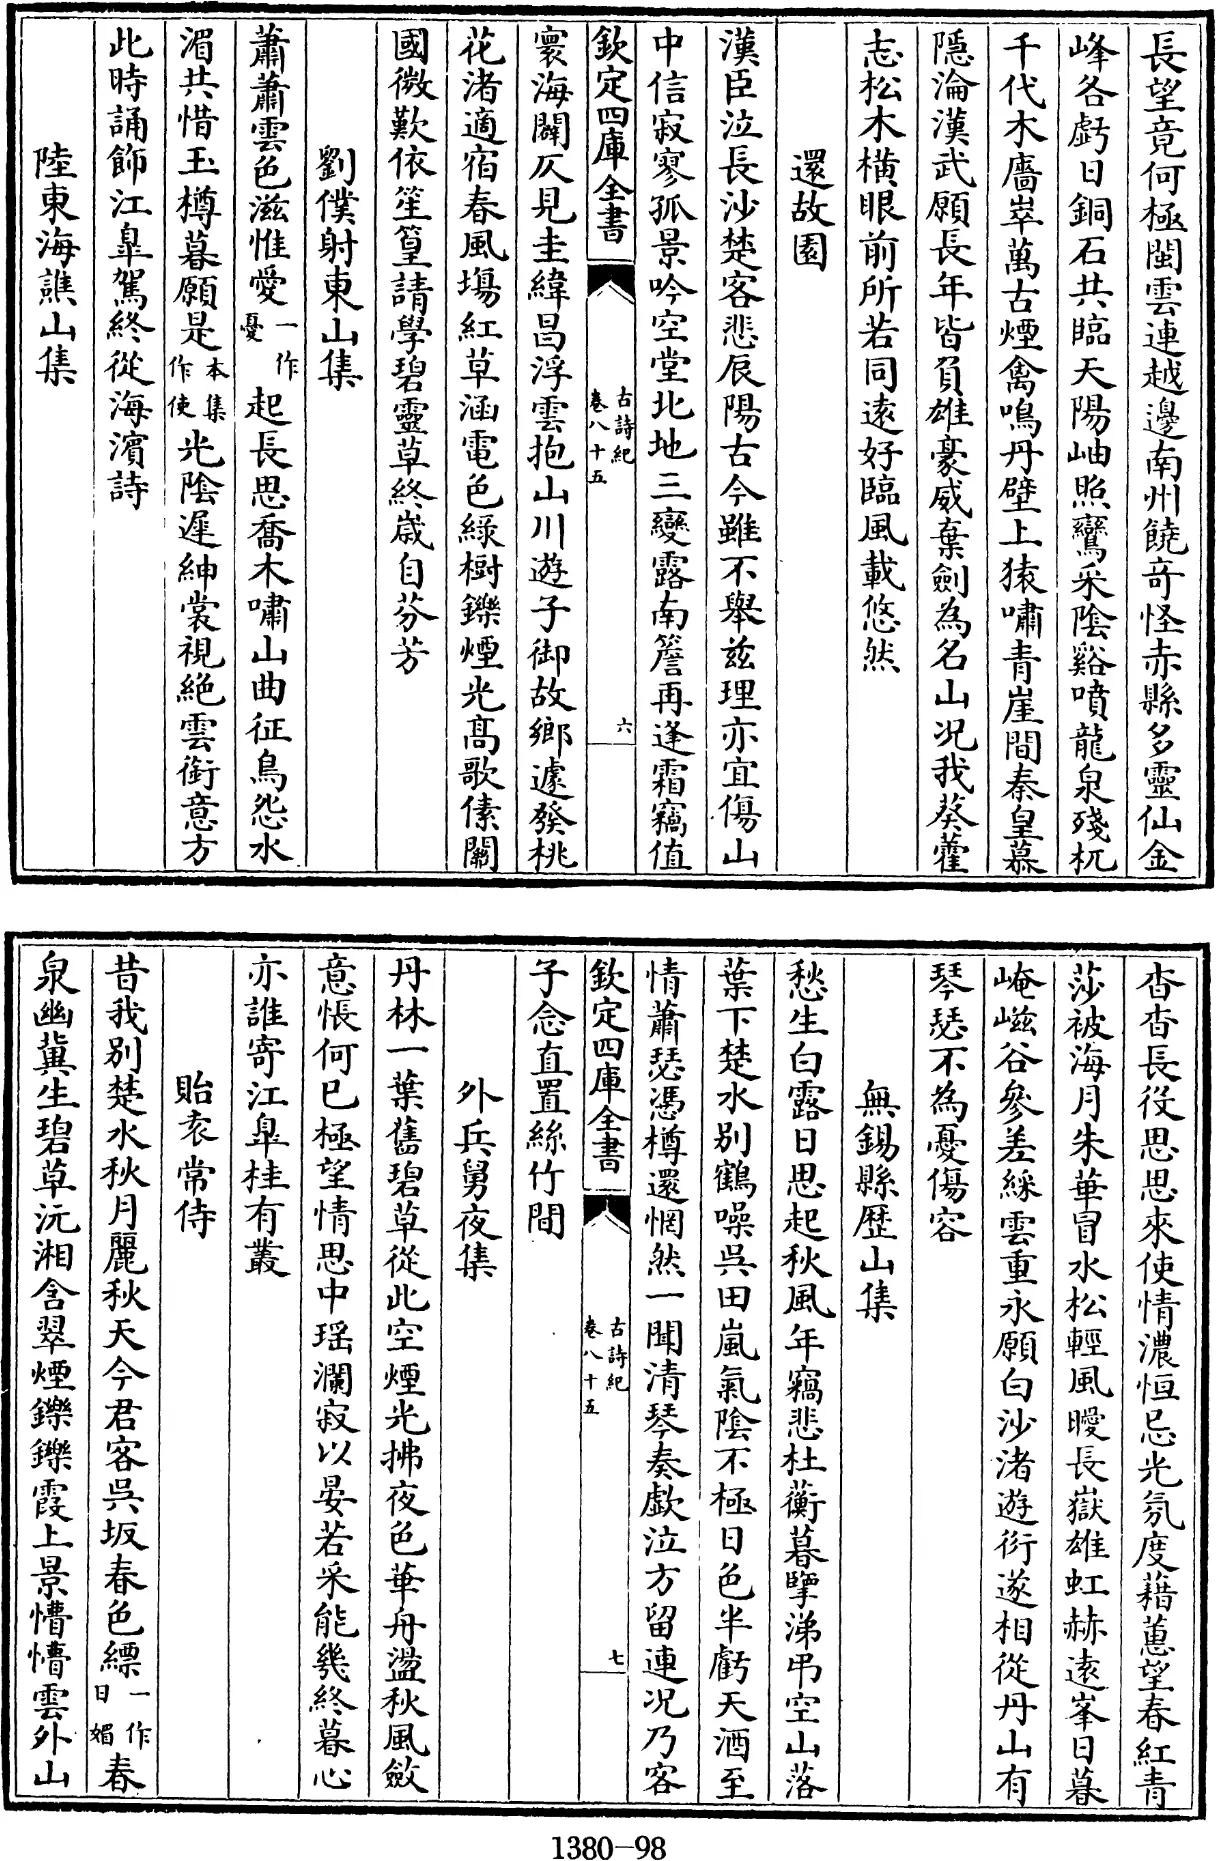 長望竟何極閩雲連越邊南州饒奇怪赤縣多靈仙金
峰各虧日銅石共臨天陽岫照鸞采陰谿噴龍泉殘杌
千代木廧崒萬古煙禽鳴丹壁上猿嘯青崖間秦皇慕
隱淪漢武願長年皆負雄豪威棄劍為名山况我葵藿
志松木橫眼前所若同遠好臨風載悠然
還故園
漢臣泣長沙楚客悲辰陽古今雖不舉兹理亦宜傷山
中信寂寥孤景吟空堂北地三變露南簷再逢霜竊值
欽定四庫全書
古詩紀
卷八十五
六
寰海闢仄見圭緯昌浮雲抱山川遊子御故鄉遽發桃
花渚適宿春風塲紅草涵電色綠樹鑠煙光高歌傃關
國微歎依笙篁請學碧靈草終歲自芬芳
劉僕射東山集
蕭蕭雲色滋惟愛一作憂起長思喬木嘯山曲征鳥怨水
湄共惜玉樽暮願是本集作使光陰遲紳裳視絶雲銜意方
此時誦飾江臯駕終從海濱詩
陸東海譙山集
杳杳長役思思來使情濃恒忌光氛度藉蕙望春紅青
莎被海月朱華冒水松輕風曖長嶽雄虹赫遠峯日暮
崦嵫谷參差綵雲重永願白沙渚遊衍遂相從丹山有
琴瑟不為憂傷容
無錫縣歷山集
愁生白露日思起秋風年竊悲杜蘅暮擥涕弔空山落
葉下楚水別鶴噪吳田嵐氣陰不極日色半虧天酒至
情蕭瑟憑樽還惘然一聞清琴奏歔泣方留連况乃客
欽定四庫全書
古詩紀
卷八十五
七
子念直置絲竹間
外兵舅夜集
丹林一葉舊碧草從此空煙光拂夜色華舟盪秋風斂
意悵何已極望情思中瑶瀾寂以晏若采能幾終暮心
亦誰寄江臯桂有叢
貽袁常侍
昔我別楚水秋月麗秋天今君客吳坂春色縹一作日媚春
泉幽冀生碧草沅湘含翠煙鑠鑠霞上景懵懵雲外山
1380-98